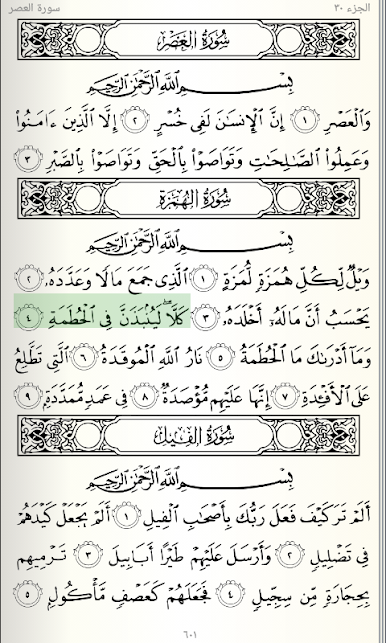 الجزء ٣٠
سورة العصر
سُورَةُ الْعَصْرِ
بِسْمِ اللَّهِ الرَّحْمَٰنِ الرَّحِيمِ
وَالْعَصْرِ ١ إِنَّ الْإِنسَانَ لَفِي خُسْرٍ ٢ إِلَّا الَّذِينَ ءَامَنُوا
وَعَمِلُوا الصَّالِحَاتِ وَتَوَاصَوْا بِالْحَقِّ وَتَوَاصَوْا بِالصَّبْرِ ٣
سُورَةُ الْهُمَزَةِ
بِسْمِ اللَّهِ الرَّحْمَٰنِ الرَّحِيمِ
وَيْلٌ لِّكُلِّ هُمَزَةٍ لُّمَزَةٍ ١ الَّذِي جَمَعَ مَالًا وَعَدَّدَهُ ٢
يَحْسَبُ أَنَّ مَالَهُ أَخْلَدَهُ ٣ كَلَّا ۖ لَيُنبَذَنَّ فِي الْحُطَمَةِ ٤
وَمَا أَدْرَاكَ مَا الْحُطَمَةُ ٥ نَارُ اللَّهِ الْمُوقَدَةُ ٦ الَّتِي تَطَّلِعُ
عَلَى الْأَفْئِدَةِ ٧ إِنَّهَا عَلَيْهِم مُّؤْصَدَةٌ ٨ فِي عَمَدٍ مُّمَدَّدَةٍ ٩
سُورَةُ الْفِيلِ
بِسْمِ اللَّهِ الرَّحْمَٰنِ الرَّحِيمِ
أَلَمْ تَرَ كَيْفَ فَعَلَ رَبُّكَ بِأَصْحَابِ الْفِيلِ ١ أَلَمْ يَجْعَلْ كَيْدَهُمْ
فِي تَضْلِيلٍ ٢ وَأَرْسَلَ عَلَيْهِمْ طَيْرًا أَبَابِيلَ ٣ تَرْمِيهِم
بِحِجَارَةٍ مِّن سِجِّيلٍ ٤ فَجَعَلَهُمْ كَعَصْفٍ مَّأْكُولٍ ٥
٦٠١